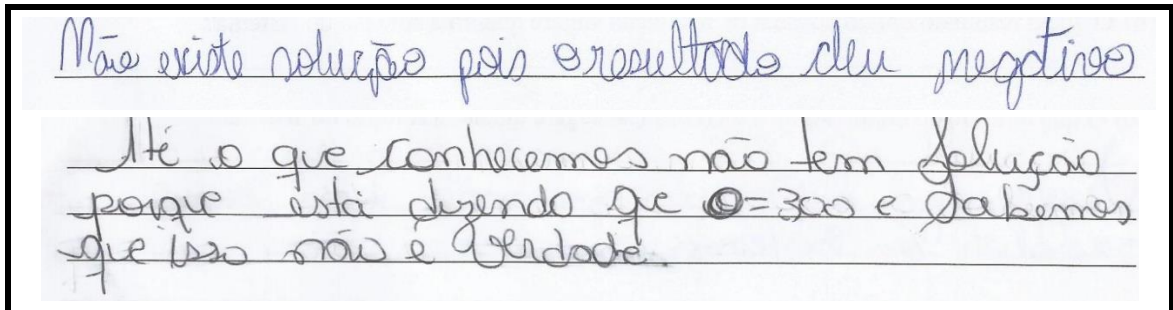 Não existe solução pois o resultado deu negativo
Até o que conhecemos não tem solução
porque está dizendo que 0=300 e sabemos
que isso não é verdade.